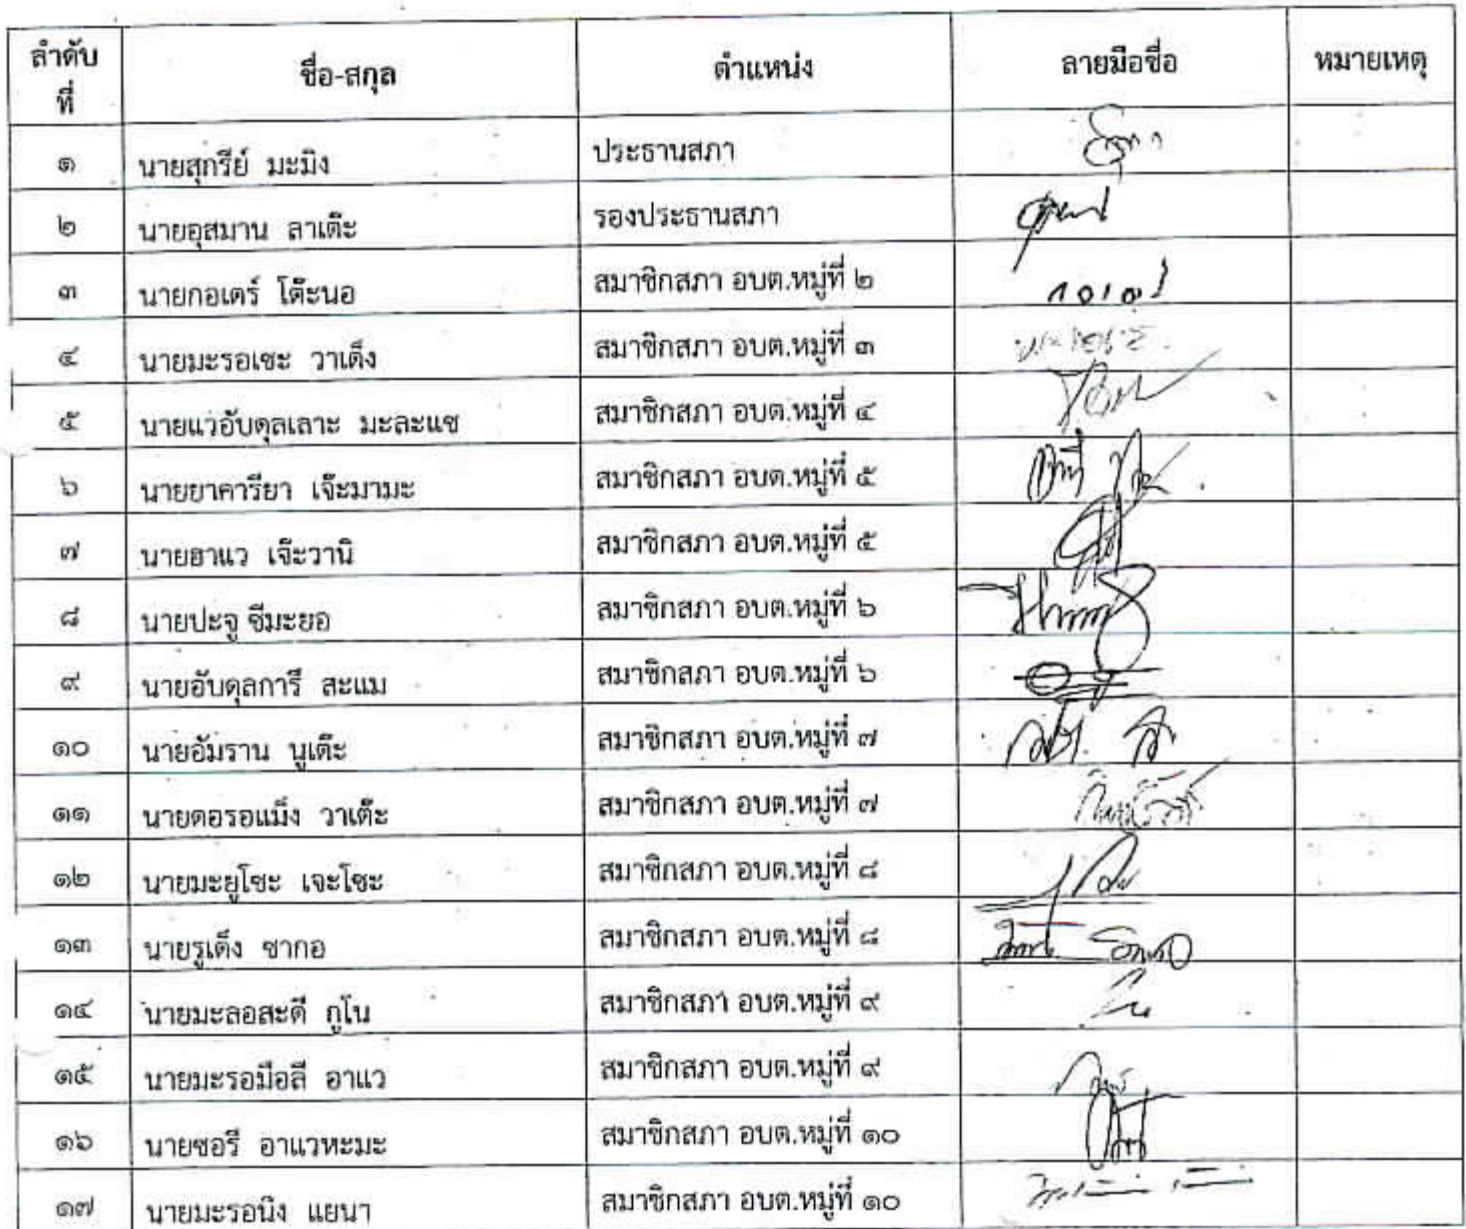 ลำดับ ชื่อ-สกุล ตำแหน่ง ลายมือชื่อ หมายเหตุ
ที่
๑ นายสุกรีย์ มะมิง ประธานสภา
๒ นายอุสมาน ลาเต๊ะ รองประธานสภา
๓ นายกอเดร์ โต๊ะนอ สมาชิกสภา อบต.หมู่ที่ ๒
๔ นายมะรอเซะ วาเด็ง สมาชิกสภา อบต.หมู่ที่ ๓
๕ นายแวอับดุลเลาะ มะละแซ สมาชิกสภา อบต.หมู่ที่ ๔
๖ นายยาคารียา เจ๊ะมามะ สมาชิกสภา อบต.หมู่ที่ ๕
๗ นายฮาแว เจ๊ะวานิ สมาชิกสภา อบต.หมู่ที่ ๕
๘ นายปะจู ซีมะยอ สมาชิกสภา อบต.หมู่ที่ ๖
๙ นายอับดุลการี สะแม สมาชิกสภา อบต.หมู่ที่ ๖
๑๐ นายอัมราน นูเต๊ะ สมาชิกสภา อบต.หมู่ที่ ๗
๑๑ นายดอรอแม็ง วาเต๊ะ สมาชิกสภา อบต.หมู่ที่ ๗
๑๒ นายมะยูโซะ เจะโซะ สมาชิกสภา อบต.หมู่ที่ ๘
๑๓ นายรูเด็ง ซากอ สมาชิกสภา อบต.หมู่ที่ ๘
๑๔ นายมะลอสะดี กูโน สมาชิกสภา อบต.หมู่ที่ ๙
๑๕ นายมะรอมือลี อาแว สมาชิกสภา อบต.หมู่ที่ ๙
๑๖ นายซอรี อาแวหะมะ สมาชิกสภา อบต.หมู่ที่ ๑๐
๑๗ นายมะรอนิง แยนา สมาชิกสภา อบต.หมู่ที่ ๑๐